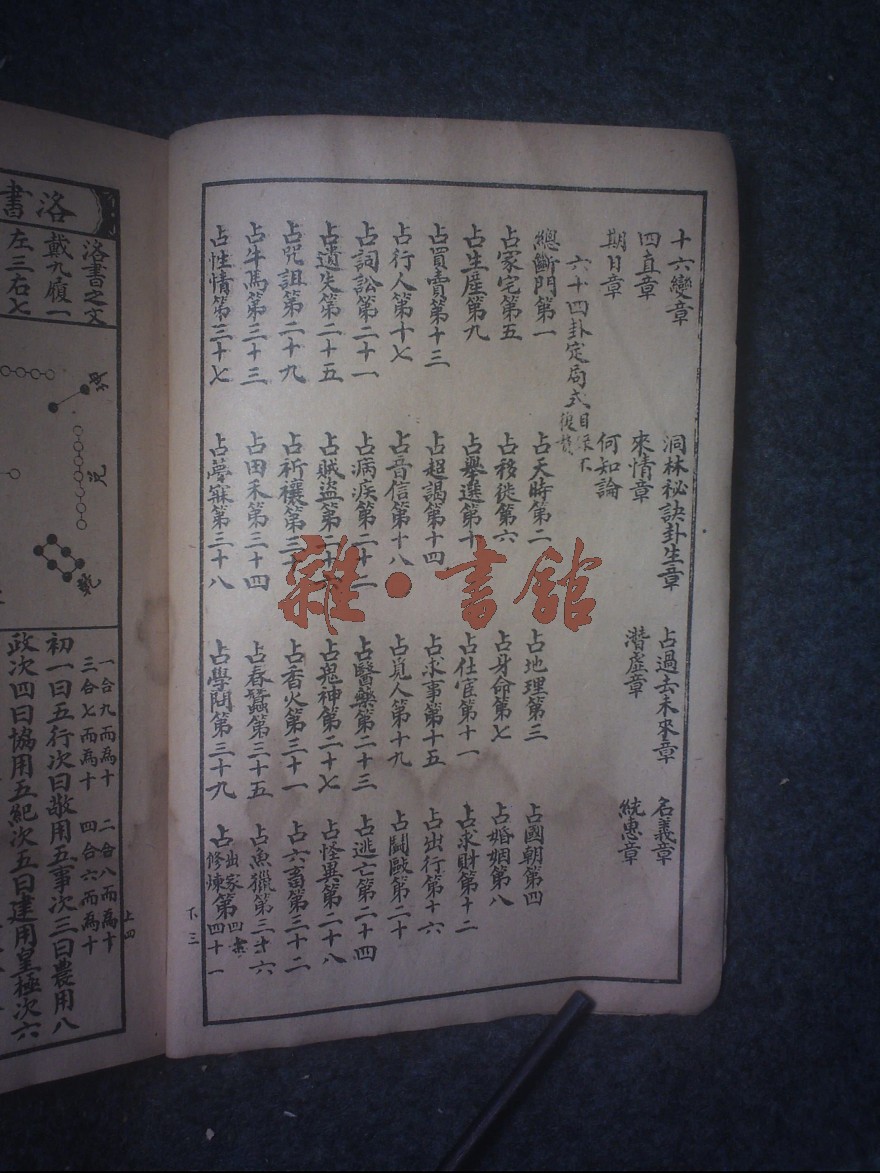 十六變章　洞林祕訣卦生章　占過去未來章　名義章
四直章　來情章　潛虛章　統惠章
期日章　何知論
六十四卦定局式目
總斷門第一　占天時第二　占地理第三　占國朝第四
占家宅第五　占移徙第六　占身命第七　占婚姻第八
占生產第九　占擧選第十　占仕宦第十一　占求財第十二
占買賣第十三　占超謁第十四　占求事第十五　占出行第十六
占行人第十七　占音信第十八　占覓人第十九　占鬪毆第二十
占詞訟第二十一　占病疾第二十二　占醫藥第二十三　占逃亡第二十四
占遺失第二十五　占賊盜第二十　占鬼神第二十七　占怪異第二十八
占咒詛第二十九　占祈禳第三十　占香火第三十一　占六畜第三十二
占牛馬第三十三　占田禾第三十四　占春蠶第三十五　占魚獵第三十六
占性情第三十七　占夢寐第三十八　占學問第三十九　占出家修煉第四十一
下三
雜·書館
洛書
洛書之文
戴九履一
左三右七
一合九而爲十　二合八而爲十
三合七而爲十　四合六而爲十
初一曰五行次曰敬用五事次三曰農用八
政次四曰協用五紀次五曰建用皇極次六
上四